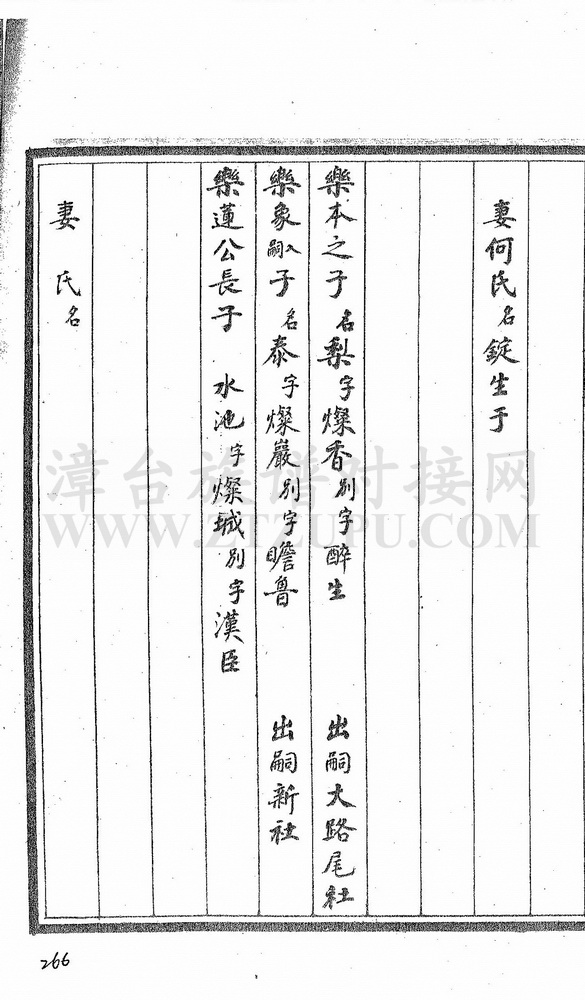 妻何氏名錠生于
樂本之子名梨字燦香別字醉生 出嗣大路尾社
樂象入嗣子名泰字燦巖別字瞻魯 出嗣新社
樂蓮公長子 水池字燦城別字漢臣
妻 氏名
漳台族谱对接网
WWW.ZTZUPU.COM
266